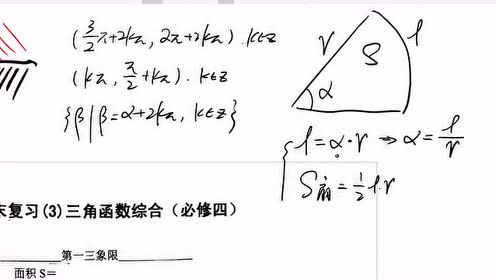 (3/2π+2kπ, 2π+2kπ). k∈Z
(kπ, π/2+kπ). k∈Z
{β|β=α+2kπ, k∈Z}
r
l
S
α
l=α·r → α=l/r
S扇=1/2 l·r
末复习(3)三角函数综合（必修四）
第一三象限
面积 S=